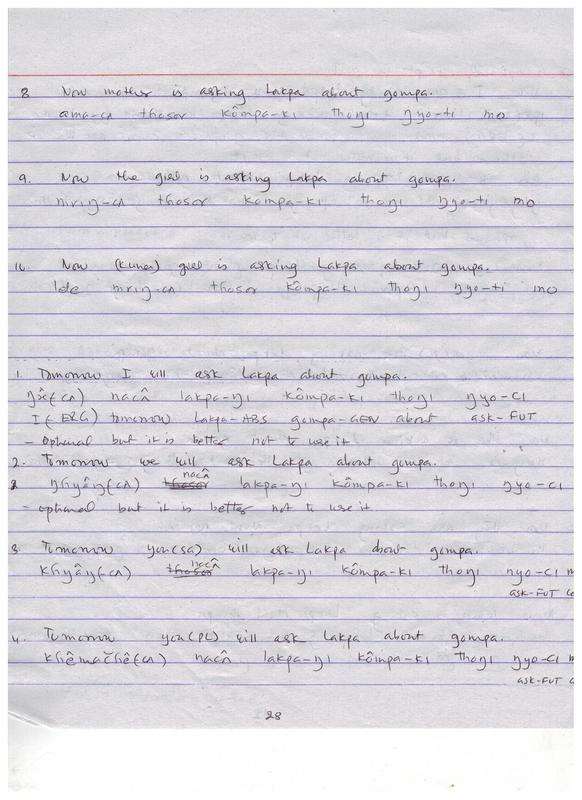 8 Now mother is asking Lakpa about gompa.
ama-cʌ thosor kômpa-kɪ thoŋɪ ŋyo-ti mo
9. Now the girl is asking Lakpa about gompa.
mriŋ-cʌ thosor kompa-kɪ thoŋɪ ŋyo-ti mo
10. Now (Kunsa) girl is asking Lakpa about gompa.
mriŋ-cʌ thosor kômpa-kɪ thoŋɪ ŋyo-ti mo
1. Tomorrow I will ask Lakpa about gompa.
nacʌ̂ lakpa-ŋɪ kômpa-kɪ thoŋɪ ŋyo-cɪ
I (ERG) tomorrow Lakpa-ABS gompa-GEN about ask-FUT
- optional but it is better not to use it
2. Tomorrow we will ask Lakpa about gompa.
nacʌ̂
lakpa-ŋɪ kômpa-kɪ thoŋɪ ŋyo-cɪ
- optional but it is better not to use it
3. Tomorrow you(SG) will ask Lakpa about gompa.
nacʌ̂
khyâŋ(-cʌ) lakpa-ŋɪ kômpa-kɪ thoŋɪ ŋyo-cɪ
ask-FUT
4. Tomorrow you(PL) will ask Lakpa about gompa.
nacʌ̂ lakpa-ŋɪ kômpa-kɪ thoŋɪ ŋyo-cɪ
ask-FUT
28